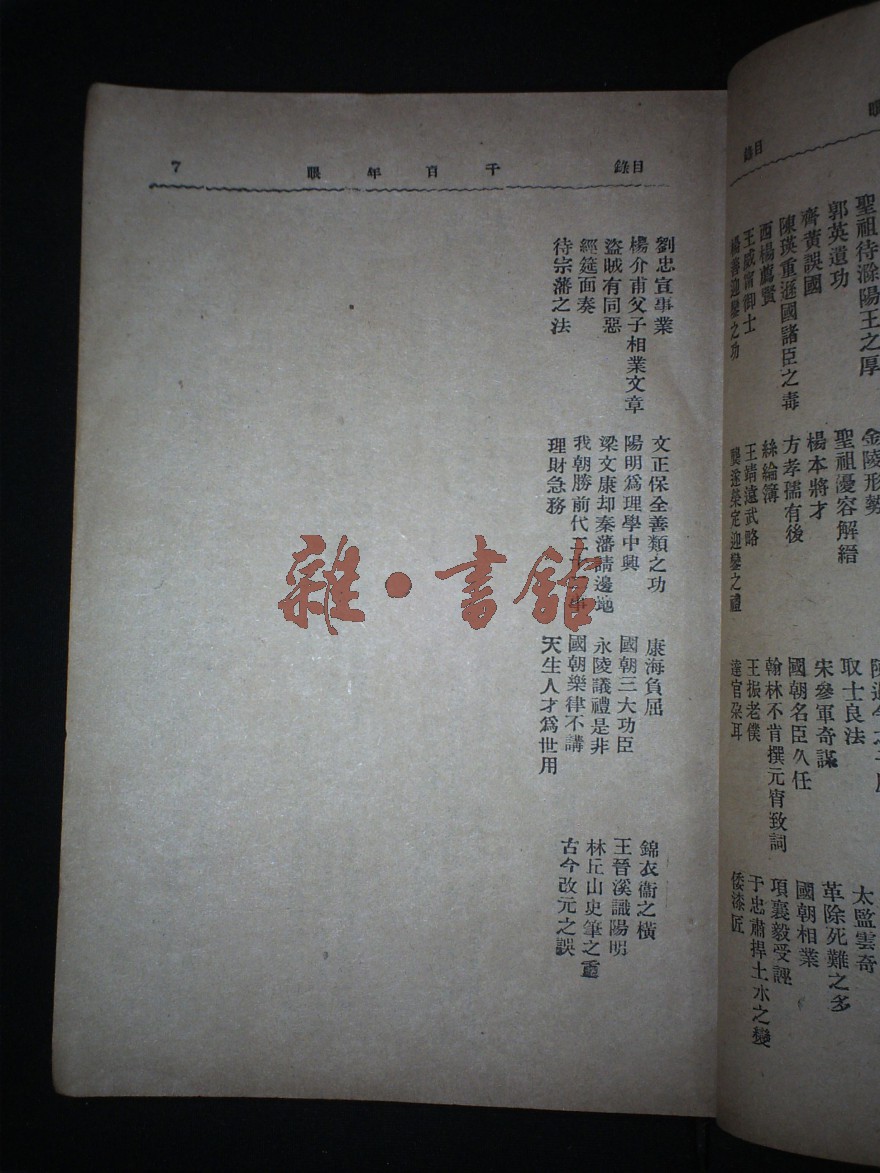 目錄
千百年眼
7
聖祖待滁陽王之厚
金陵形勢
太監雲奇
郭英遺功
聖祖優容解縉
取士良法
革除死難之多
齊黃誤國
楊本將才
宋參軍奇謀
國朝相業
陳瑛重遜國諸臣之毒
方孝孺有後
國朝名臣久任
項襄毅受誣
酉楊薦賢
絲綸簿
翰林不肯撰元宵致詞
于忠肅捍土木之變
王威甯御士
王靖遠武略
王振老僕
倭漆匠
楊善迎鑾之功
龔遂榮定迎鑾之禮
達官朶耳
劉忠宣事業
文正保全善類之功
康海負屈
錦衣衞之橫
楊介甫父子相業文章
陽明爲理學中興
國朝三大功臣
王晉溪識陽明
盜賊有同惡
梁文康却秦藩請邊地
永陵議禮是非
林丘山史筆之重
經筵面奏
我朝勝前代
國朝樂律不講
古今改元之誤
待宗藩之法
理財急務
天生人才爲世用
雜·書館